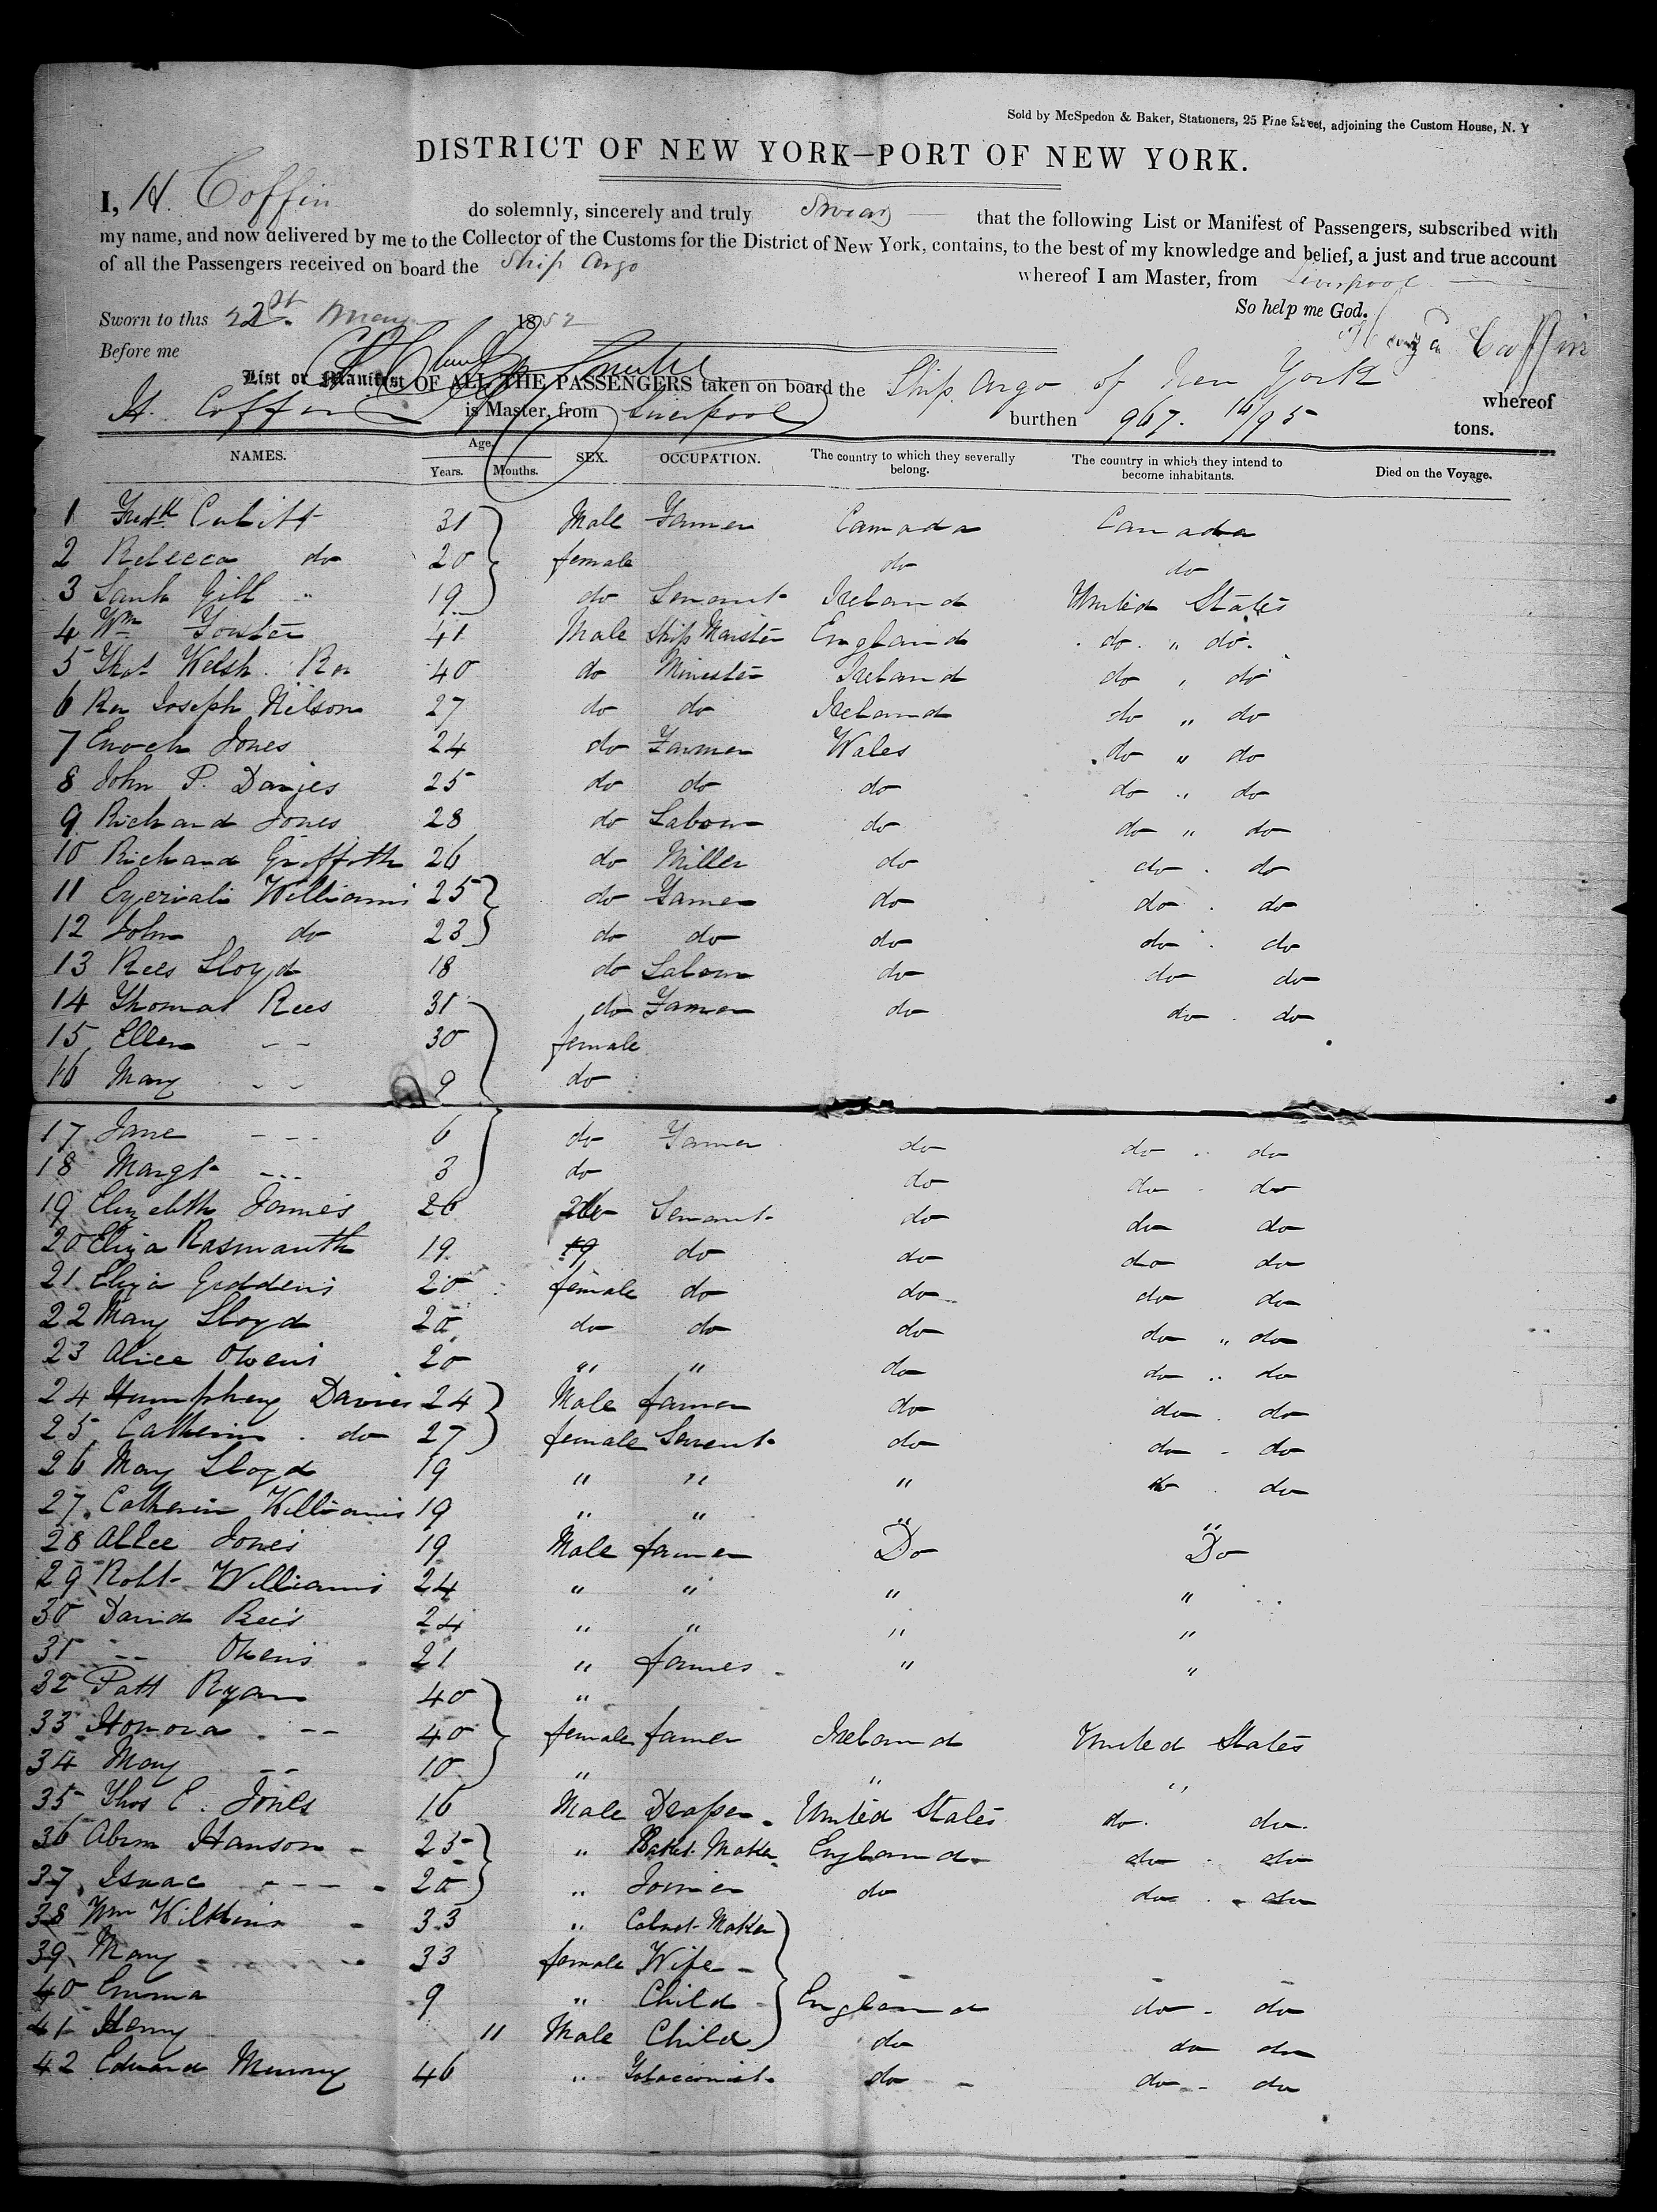 Sold by McSpedon & Baker, Stationers, 25 Pine Street, adjoining the Custom House, N. Y
DISTRICT OF NEW YORK—PORT OF NEW YORK.
I, H. Coffin do solemnly, sincerely and truly Swear that the following List or Manifest of Passengers, subscribed with
my name, and now delivered by me to the Collector of the Customs for the District of New York, contains, to the best of my knowledge and belief, a just and true account
of all the Passengers received on board the Ship Argo whereof I am Master, from Liverpool
So help me God.
Sworn to this 22st May 1852
Before me Coffin
List or Manifest OF ALL THE PASSENGERS taken on board the Ship Argo of New York whereof
H. Coffin is Master, from Liverpool burthen 967. 14/95 tons.
NAMES. Age. Years. Months. SEX. OCCUPATION. The country to which they severally belong. The country in which they intend to become inhabitants. Died on the Voyage.
1 Fredk Cubitt 31 Male Farmer Canada Canada
2 Rebecca do 20 female do do
3 Sarah Gill " 19 do Servant Ireland United States
4 Wm Forster 41 Male Ship Master England do " do
5 Thos Welsh Rev 40 do Minister Ireland do " do
6 Rev Joseph Nelson 27 do do Ireland do " do
7 Enoch Jones 24 do Farmer Wales do " do
8 John P. Davies 25 do do do do " do
9 Richard Jones 28 do Labour do do " do
10 Richard Griffith 26 do Miller do do . do
11 Williams 25 do Farmer do do . do
12 John do 23 do do do do . do
13 Rees Lloyd 18 do Labour do do do
14 Thomas Rees 31 do Farmer do do . do
15 Ellen -- 30 female
16 Mary -- 9 do
17 Jane --- 6 do Farmer do do .. do
18 Margt --- 3 do do do - do
19 Elizebeth James 26 do Servant do do do
20 Eliza Rasmanth 19 19 do do do do
21 Eliza Giddens 20 female do do do do
22 Mary Lloyd 20 do do do do " do
23 Alice Owens 20 " " do do .. do
24 Humphrey Davies 24 Male farmer do do . do
25 Catherin . do 27 female Servent do do - do
26 Mary Lloyd 19 " " " do . do
27 Catherin Williams 19 " " " "
28 Allee Jones 19 Male farmer Do Do
29 Robt Williams 24 " " " "
30 David Rees 24 " " " "
31 -- Owens 21 " farmer " "
32 Patt Ryan 40 "
33 Honora -- 40 female farmer Ireland United States
34 Mary -- 10 " " "
35 Thos C. Jones 16 Male Draper United States do. do.
36 Abrm Hanson 25 " Basket Maker England do . do
37 Isaac --- 20 " Joiner do do . do
38 Wm Wilkins 33 " Cabnet Maker
39 Mary 33 female Wife
40 Emma 9 " Child England do - do
41 Henry 11 Male Child do do do
42 Edward Murray 46 " Tobacconist do do - do